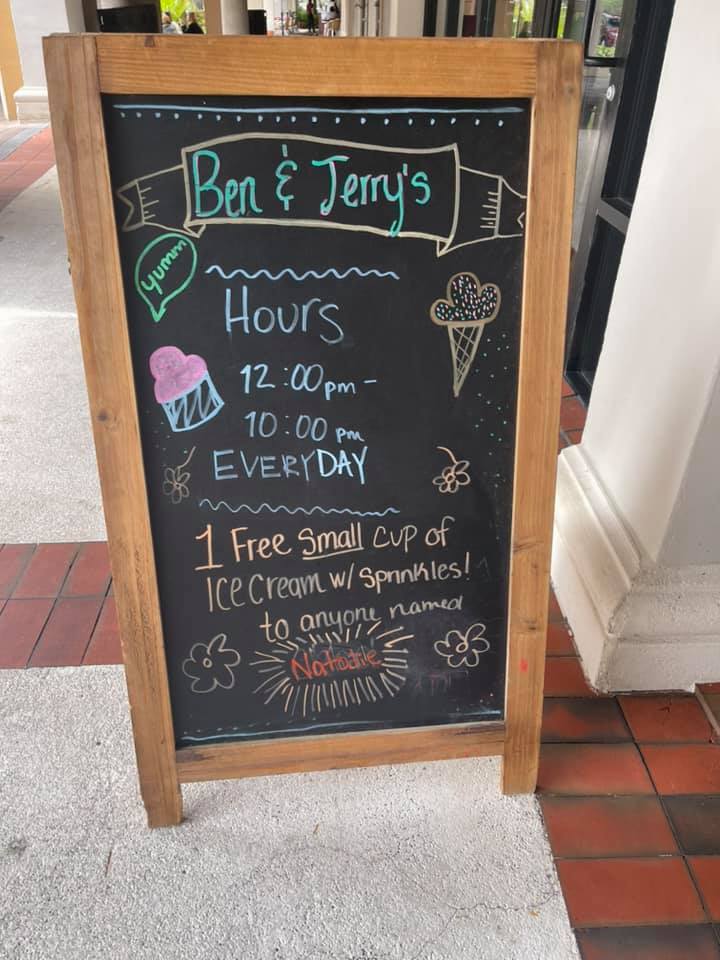 Ben & Jerry's
Yumm
Hours
12:00pm -
10:00 pm
EVERYDAY
1 Free Small cup of
Ice Cream w/ Sprinkles!
to anyone named